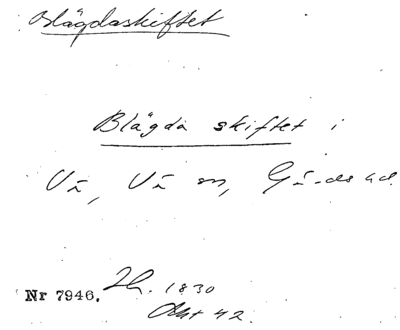 Blägdaskiftet
Blägda skiftet i
Vä, Vä sn, Gärds hd.
Nr 7946. 1830
Akt 42.